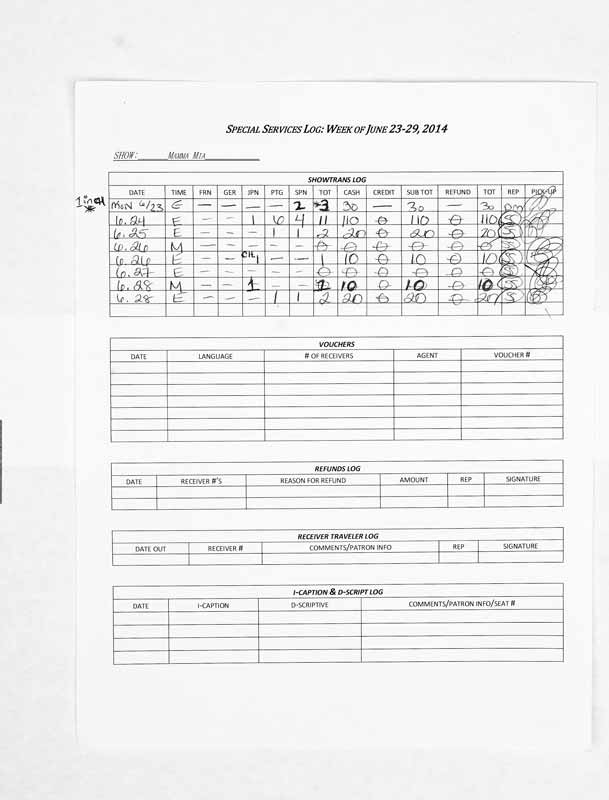 SPECIAL SERVICES LOG: WEEK OF JUNE 23-29, 2014
SHOW: MAMMA MIA
SHOWTRANS LOG
DATE TIME FRN GER JPN PTG SPN TOT CASH CREDIT SUB TOT REFUND TOT REP PICK-UP
MON 6/23 E — — — — 2 3 30 — 30 — 30
6.24 E — — 1 6 4 11 110 0 110 0 110
6.25 E — — — 1 1 2 20 0 20 0 20
6.26 M — — — — — 0 0 0 0 0 0
6.26 E — — CH 1 — — 1 10 0 10 0 10
6.27 E — — — — — 0 0 0 0 0 0
6.28 M — — 1 — — 1 10 0 10 0 10
6.28 E — — — 1 1 2 20 0 20 0 20
VOUCHERS
DATE LANGUAGE # OF RECEIVERS AGENT VOUCHER #
REFUNDS LOG
DATE RECEIVER #'S REASON FOR REFUND AMOUNT REP SIGNATURE
RECEIVER TRAVELER LOG
DATE OUT RECEIVER # COMMENTS/PATRON INFO REP SIGNATURE
I-CAPTION & D-SCRIPT LOG
DATE I-CAPTION D-SCRIPTIVE COMMENTS/PATRON INFO/SEAT #